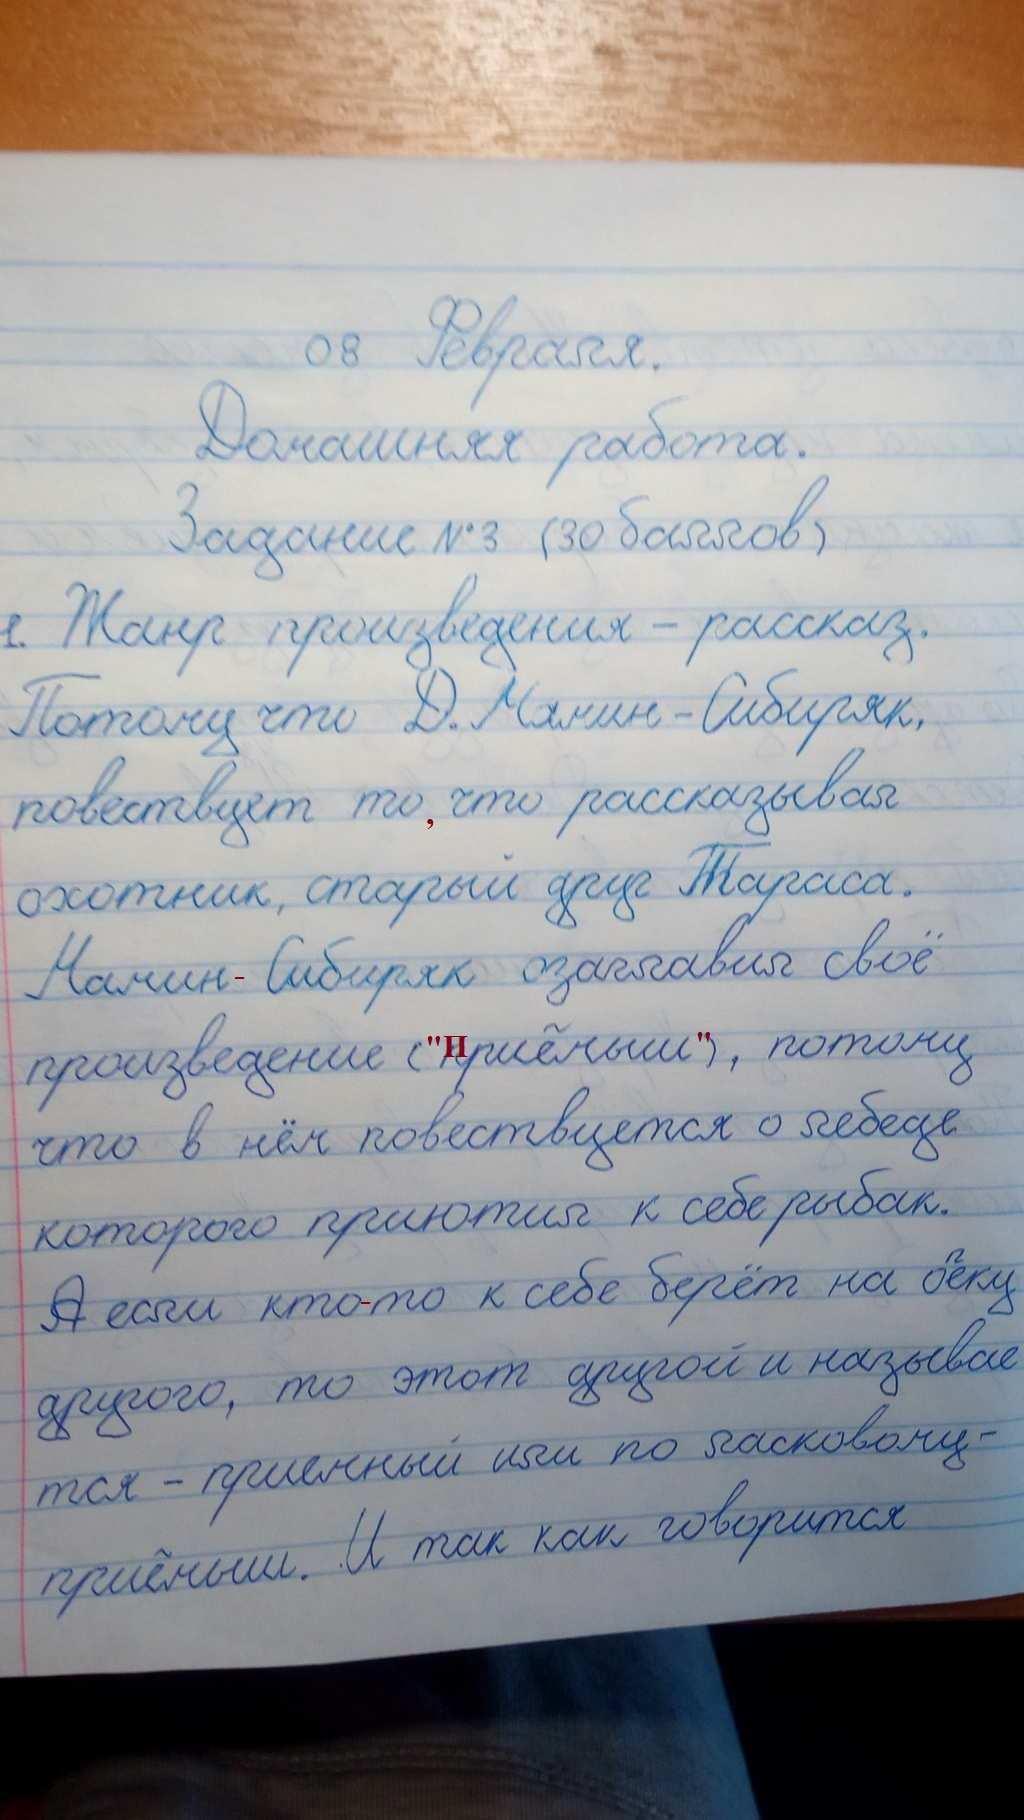 08 Февраля.
Домашняя работа.
Задание №3 (30 баллов)
1. Жанр произведения - рассказ.
Потому что Д. Мамин-Сибиряк,
повествует то, что рассказывал
охотник, старый друг Тараса.
Мамин-Сибиряк озаглавил своё
произведение ("Приёмыш"), потому
что в нём повествуется о лебеде
которого приютил к себе рыбак.
А если кто-то к себе берёт на опеку
другого, то этот другой и называе
тся - приемный или по ласковому-
приёмыш. И так как говорится